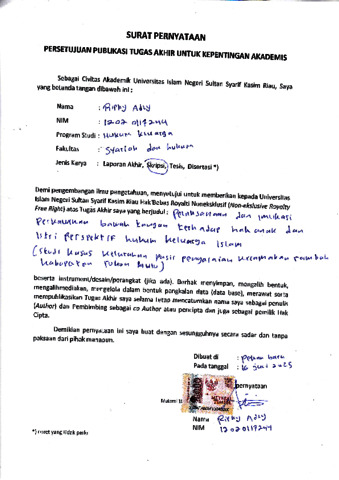 SURAT PERNYATAAN
PERSETUJUAN PUBLIKASI TUGAS AKHIR UNTUK KEPENTINGAN AKADEMIS
Sebagai Civitas Akademik Universitas Islam Negeri Sultan Syarif Kasim Riau, Saya
yang betanda tangan dibawah ini :
Nama : Rizky Adly
NIM : 12020117244
Program Studi : Hukum Keluarga
Fakultas : Syariah dan hukum
Jenis Karya : Laporan Akhir, Skripsi, Tesis, Disertasi *)
Demi pengembangan ilmu pengetahuan, menyetujui untuk memberikan kepada Universitas
Islam Negeri Sultan Syarif Kasim Riau Hak Bebas Royalti Noneksklusif (Non-exlusive Royalty
Free Right) atas Tugas Akhir saya yang berjudul : pelaksanaan dan implikasi
Pernikahan bawah tangan terhadap hak anak dan
istri perspektif hukum keluarga islam
(Studi kasus kelurahan pasir pengaraian kecamatan rambah
kabupaten rokan hulu)
beserta instrument/desain/perangkat (jika ada). Berhak menyimpan, mengalih bentuk,
mengalihmediakan, mengelola dalam bentuk pangkalan data (data base), merawat serta
mempublikasikan Tugas Akhir saya selama tetap mencatumkan nama saya sebagai penulis
(Author) dan Pembimbing sebagai co Author atau pencipta dan juga sebagai pemilik Hak
Cipta.
Demikian pernyataan ini saya buat dengan sesungguhnya secara sadar dan tanpa
paksaan dari pihak manapun.
Dibuat di : Pekan baru
Pada tanggal : 16 juni 2025
pernyataan
Nama Rizky Adly
NIM 12020117244
*) coret yang tidak perlu